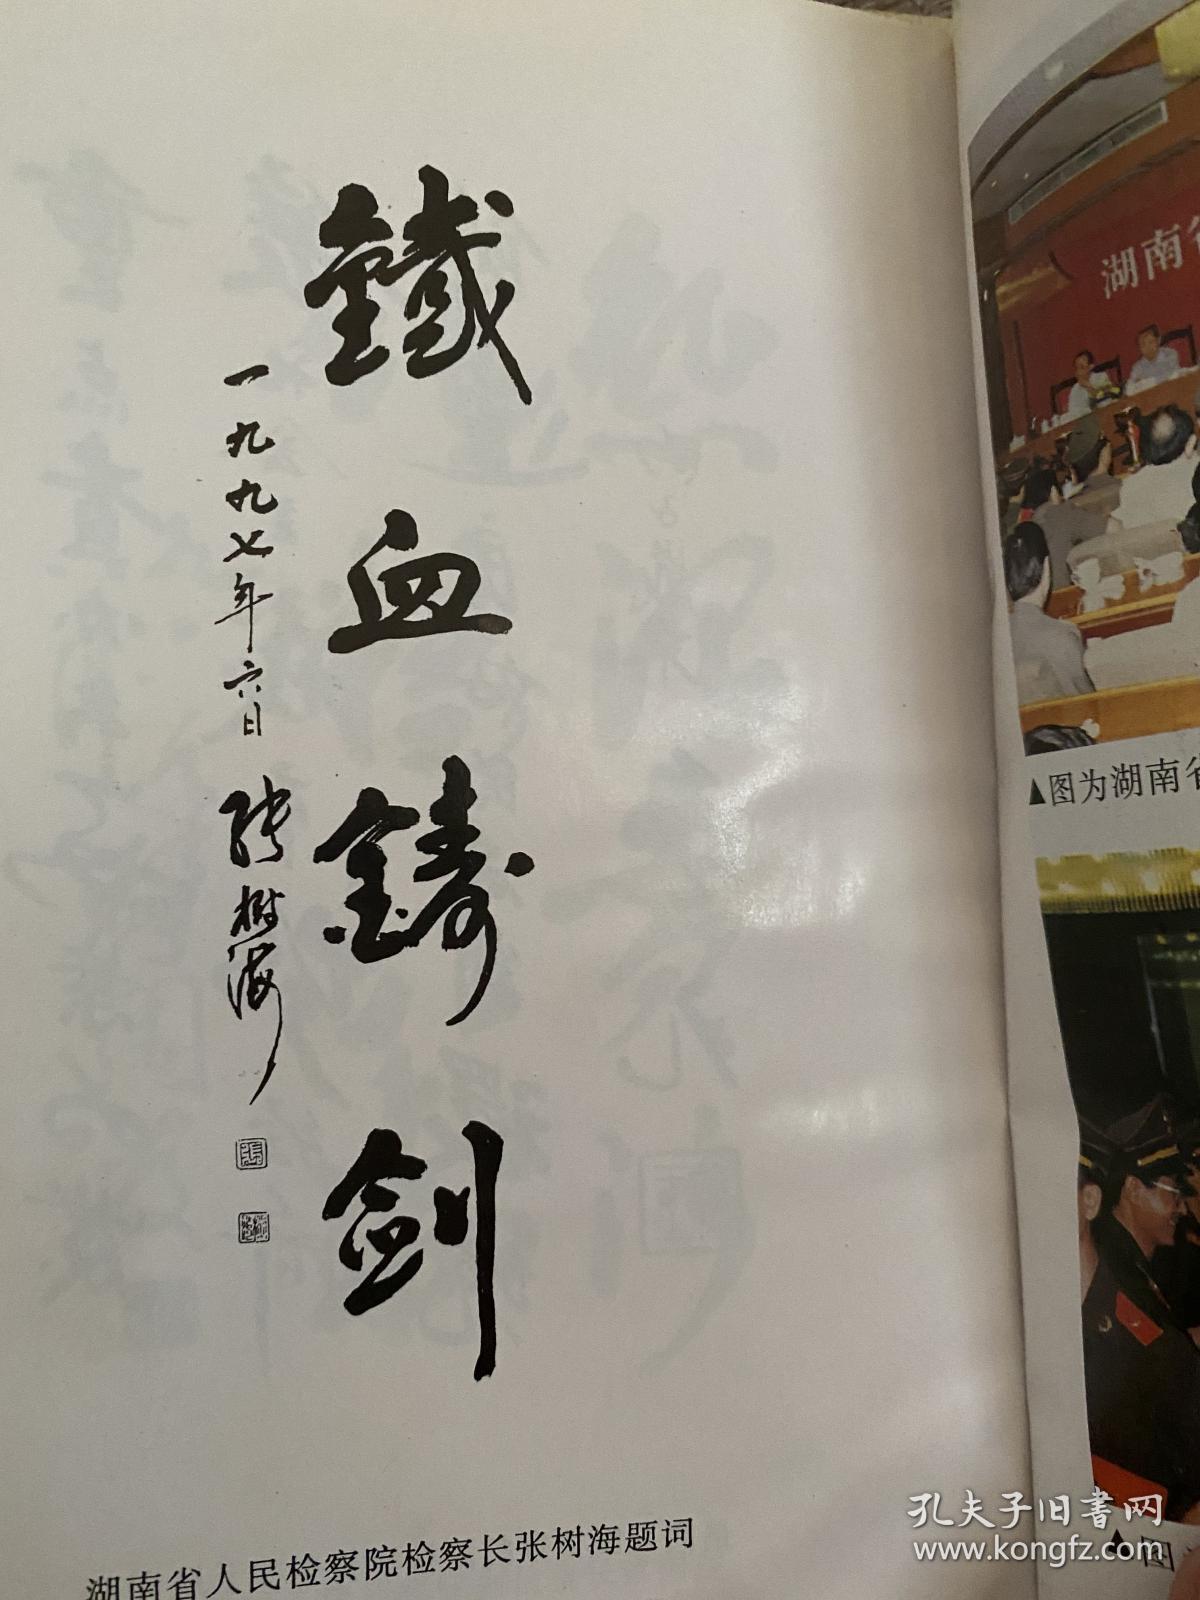 鐵血鑄劍
一九九七年六日
张樹海
湖南省人民检察院检察长张树海题词
湖南省
▲图为湖南省
▲图
孔夫子旧書网
www.kongfz.com